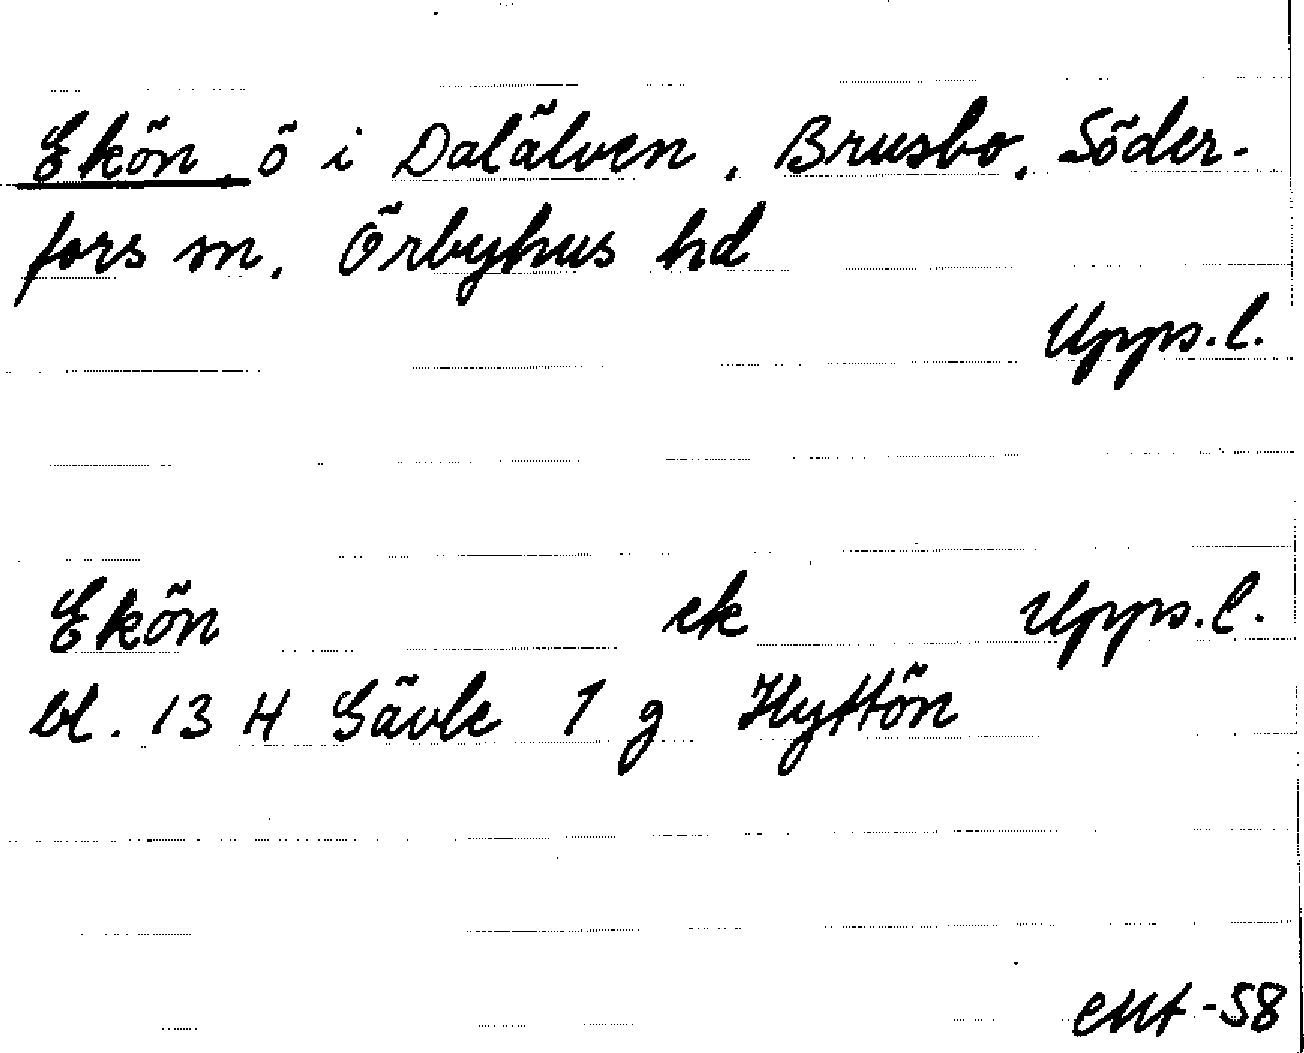 Ekön, ö i Dalälven, Brusbo, Söder-
fors sn, Örbyhus hd
Upps.l.
Ekön ek Upps.l.
bl. 13 H Gävle 1 g Hyttön
-58